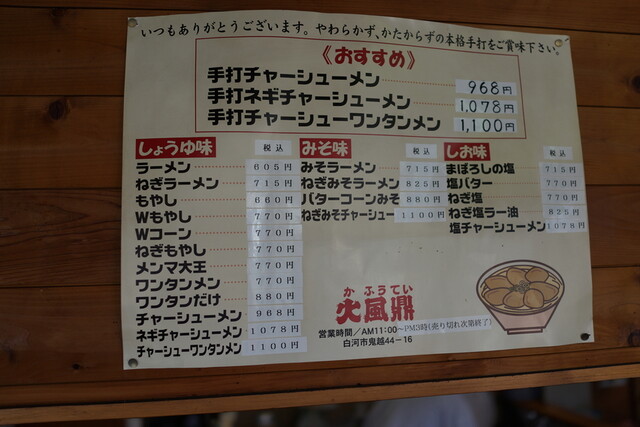 いつもありがとうございます。やわらかず、かたからずの本格手打をご賞味下さい。
《おすすめ》
手打チャーシューメン 968円
手打ネギチャーシューメン 1,078円
手打チャーシューワンタンメン 1,100円
しょうゆ味 税込
ラーメン 605円
ねぎラーメン 715円
もやし 660円
Wもやし 770円
Wコーン 770円
ねぎもやし 770円
メンマ大王 770円
ワンタンメン 770円
ワンタンだけ 880円
チャーシューメン 968円
ネギチャーシューメン 1078円
チャーシューワンタンメン 1100円
みそ味 税込
みそラーメン 715円
ねぎみそラーメン 825円
バターコーンみそ 880円
ねぎみそチャーシュー 1100円
しお味 税込
まぼろしの塩 715円
塩バター 770円
ねぎ塩 770円
ねぎ塩ラー油 825円
塩チャーシューメン 1078円
かふうてい
火風鼎
営業時間/AM11:00~PM3時(売り切れ次第終了)
白河市鬼越44-16